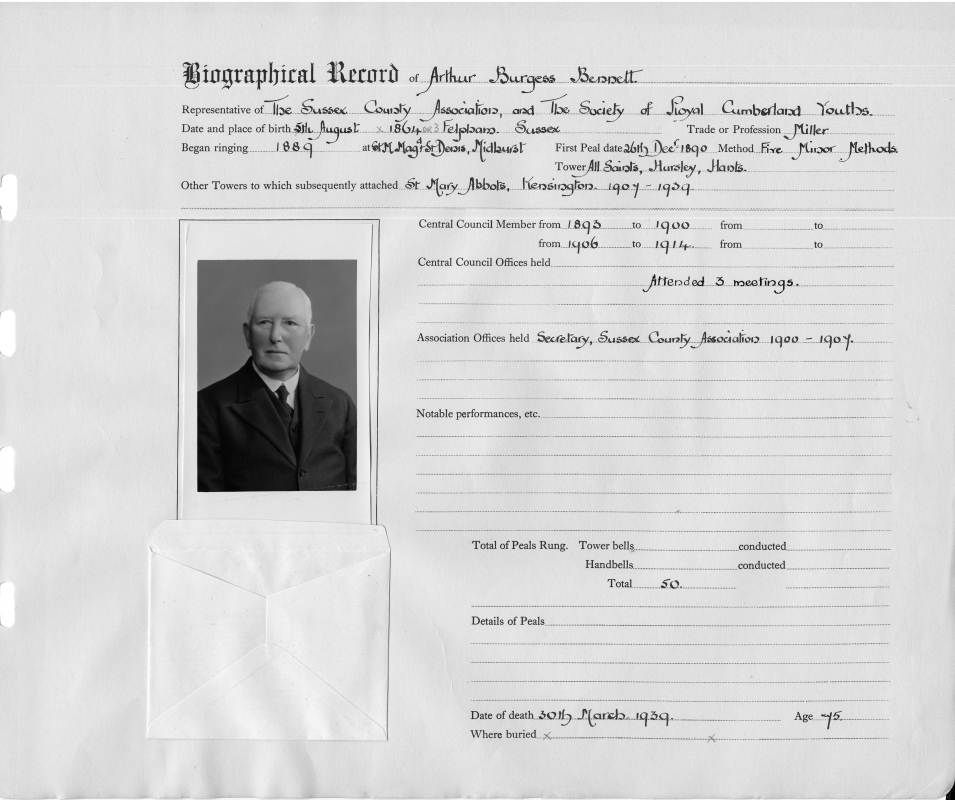 Biographical Record of Arthur Burgess Bennett.
Representative of The Sussex County Association, and The Society of Royal Cumberland Youths.
Date and place of birth 5th August x 1864 or 3 Felpham. Sussex Trade or Profession Miller
Began ringing 1889 at St. M. Magd St Denis, Midhurst First Peal date 26th Decr 1890 Method Five Minor Methods.
Tower All Saints, Hursley, Hants.
Other Towers to which subsequently attached St Mary Abbots, Kensington. 1907 - 1939
Central Council Member from 1893 to 1900 from to
from 1906 to 1914. from to
Central Council Offices held
Attended 3 meetings.
Association Offices held Secretary, Sussex County Association 1900 - 1907.
Notable performances, etc.
Total of Peals Rung. Tower bells conducted
Handbells conducted
Total 50.
Details of Peals
Date of death 30th March. 1939. Age 75.
Where buried x x